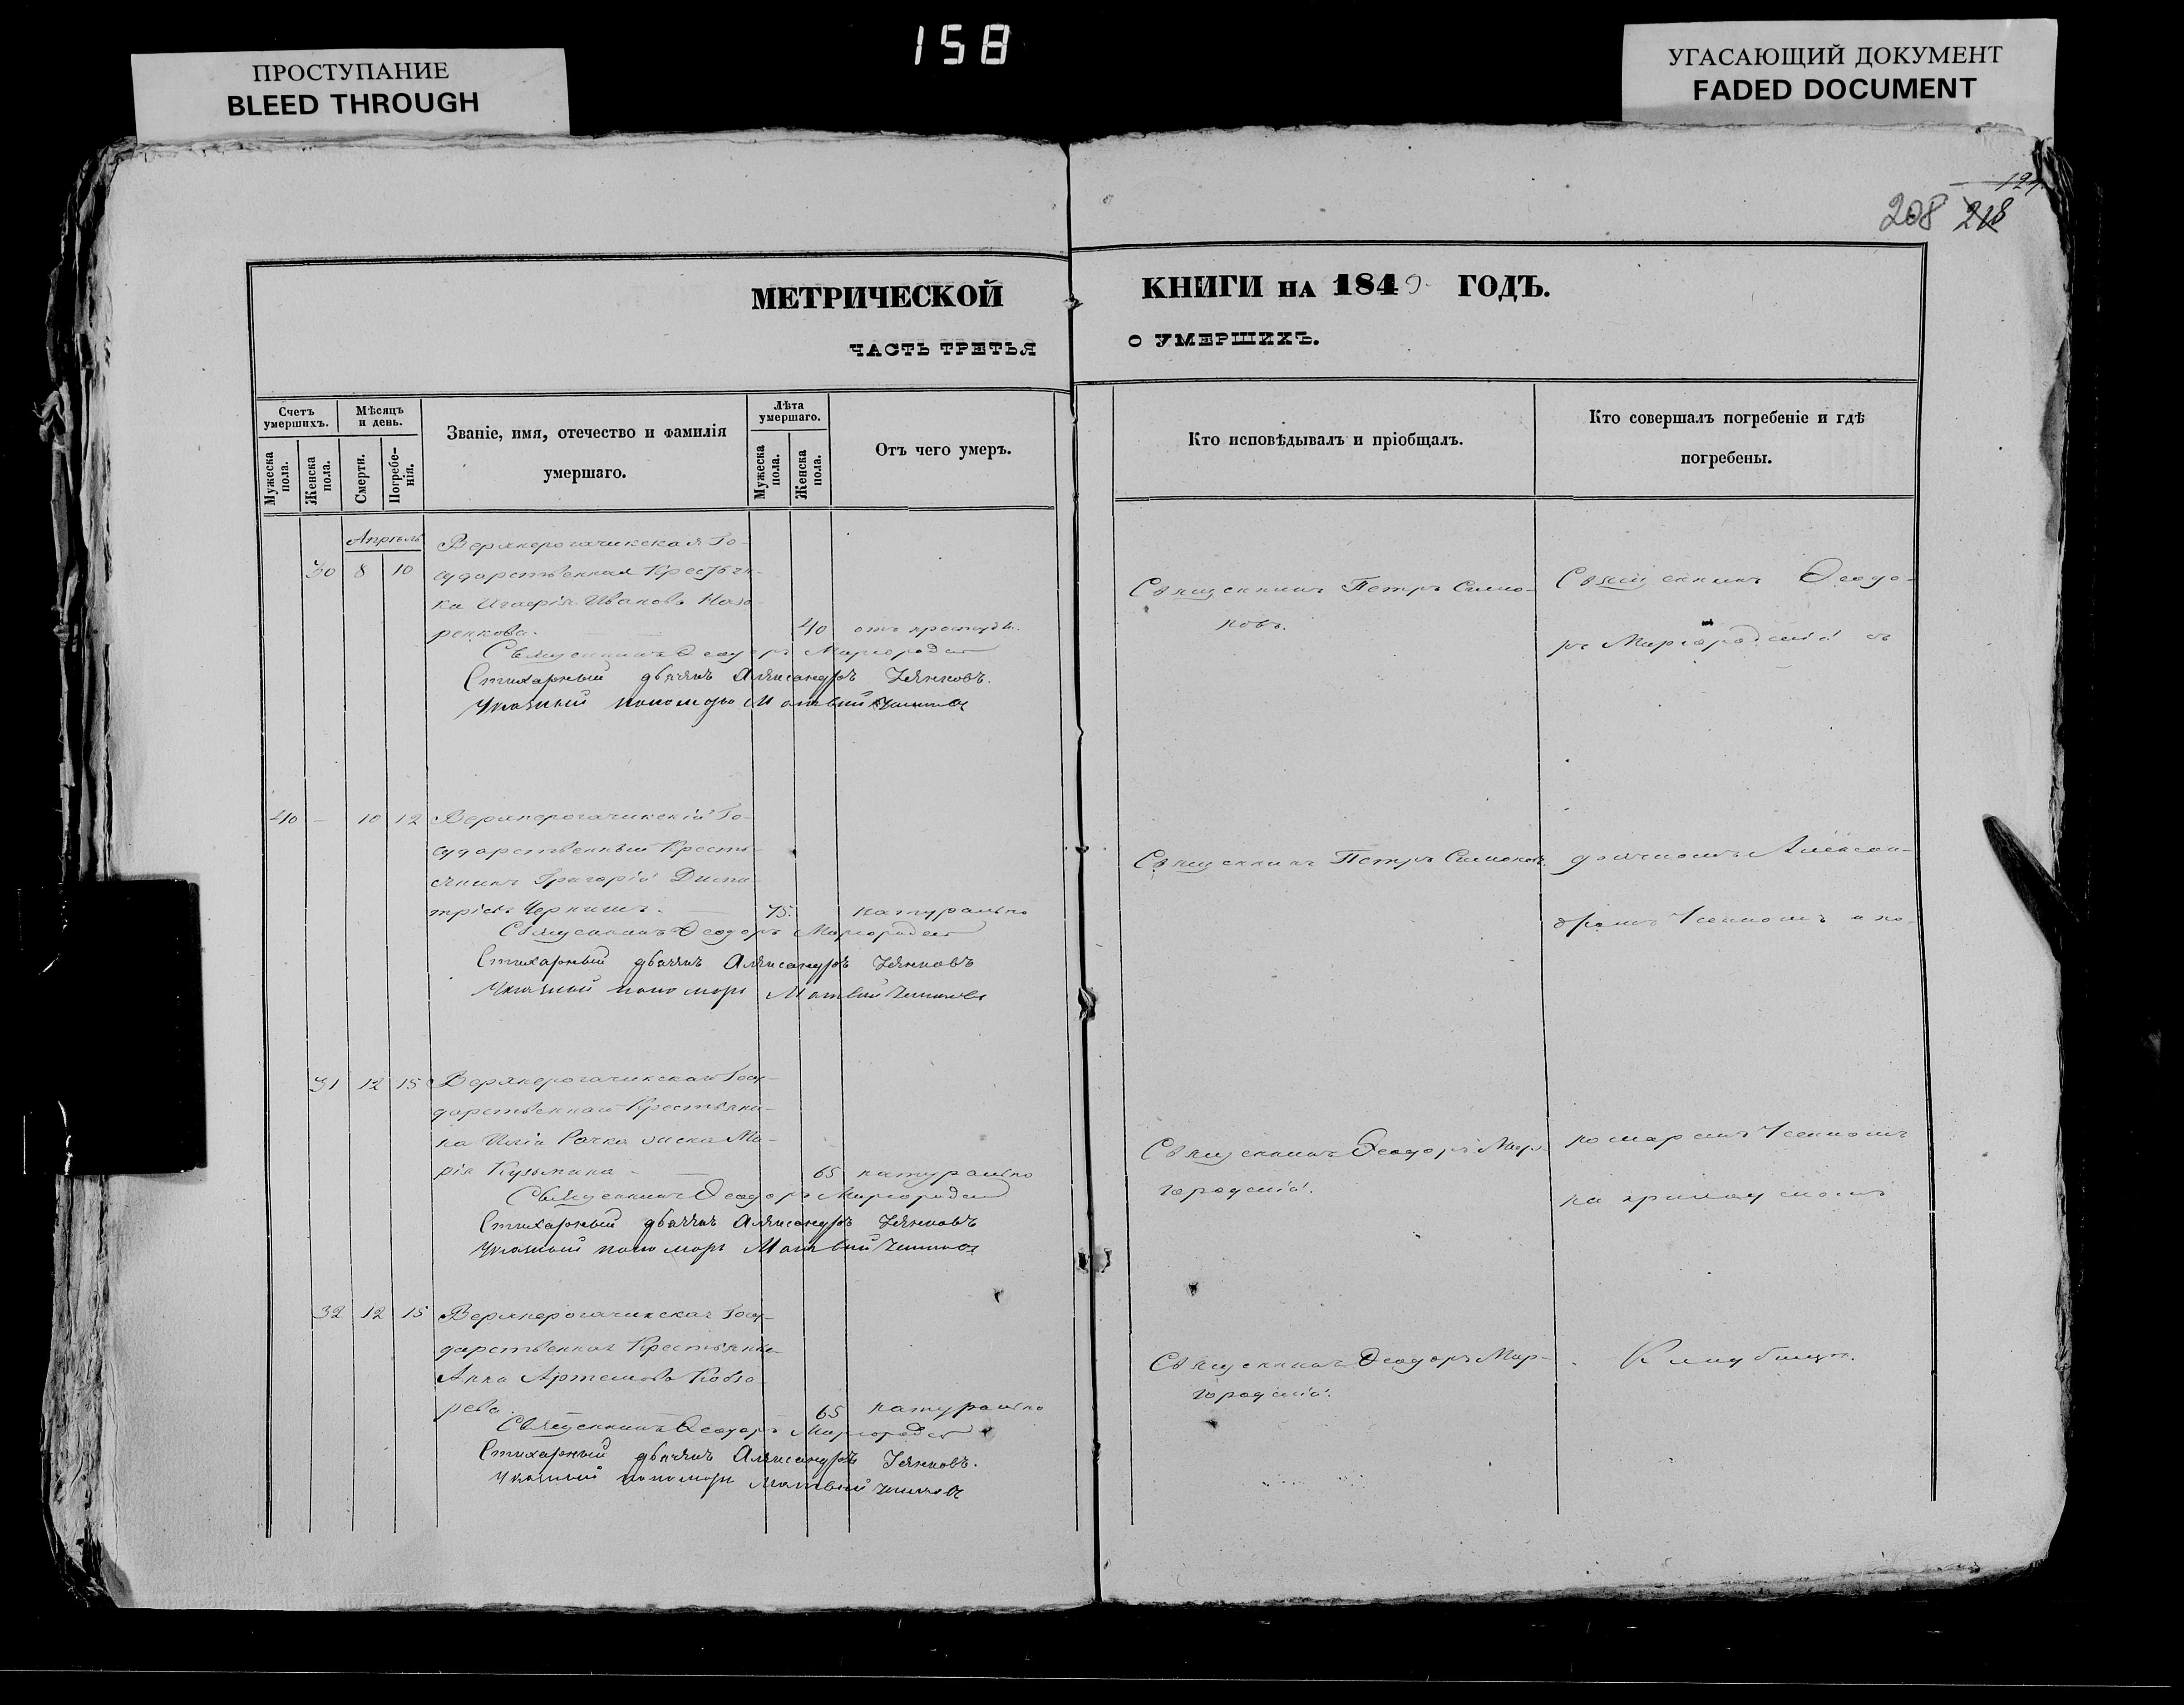 158
ПРОСТУПАНИЕ
BLEED THROUGH
УГАСАЮЩИЙ ДОКУМЕНТ
FADED DOCUMENT
208 218
МЕТРИЧЕСКОЙ КНИГИ НА 1840 ГОДЪ.
ЧАСТЬ ТРЕТЬЯ О УМЕРШИХЪ.
Счетъ умершихъ.
Мужеска пола.
Женска пола.
Мѣсяцъ и день.
Смерти.
Погребенія.
Званіе, имя, отечество и фамилія
умершаго.
Лѣта умершаго.
Мужеска пола.
Женска пола.
Отъ чего умеръ.
Кто исповѣдывалъ и пріобщалъ.
Кто совершалъ погребеніе и гдѣ
погребены.
Апрѣль
30 8 10
Верхнерогачикская Го-
сударственная Крестьян-
ка Агафія Иванова
40 отъ простуды
Священникъ Феодоръ Миргородскій
Стихарный дьячекъ Александръ
Указный пономарь Матвій
Священникъ Петръ Симо-
новъ.
Священникъ Феодо-
ръ Миргородскій съ
40 – 10 12
Верхнерогачикскій Го-
сударственный Кресть-
янинъ Григорій Дими-
тріевъ Чернышъ. 75. натурально
Священникъ Феодоръ Миргородскій
Стихарный дьячекъ Александръ
Указный пономарь Матвій
Священникъ Петръ Симоновъ.
дьячкомъ Алексан-
дромъ и по-
31 12 15
Верхнерогачикская Госу-
дарственная Крестьян-
ка Иліи Рачка жена Ма-
рія Кузьмина 65 натурально
Священникъ Феодоръ Миргородскій
Стихарный дьячекъ Александръ
Указный пономарь Матвій
Священникъ Феодоръ Мир-
городскій.
номаремъ
на приходскомъ
32 12 15
Верхнерогачикская Госу-
дарственная Крестьянка
Анна Артемова
65 натурально
Священникъ Феодоръ Миргородскій
Стихарный дьячекъ Александръ
Указный пономарь Матвій
Священникъ Феодоръ Мир-
городскій.
Кладбищѣ.